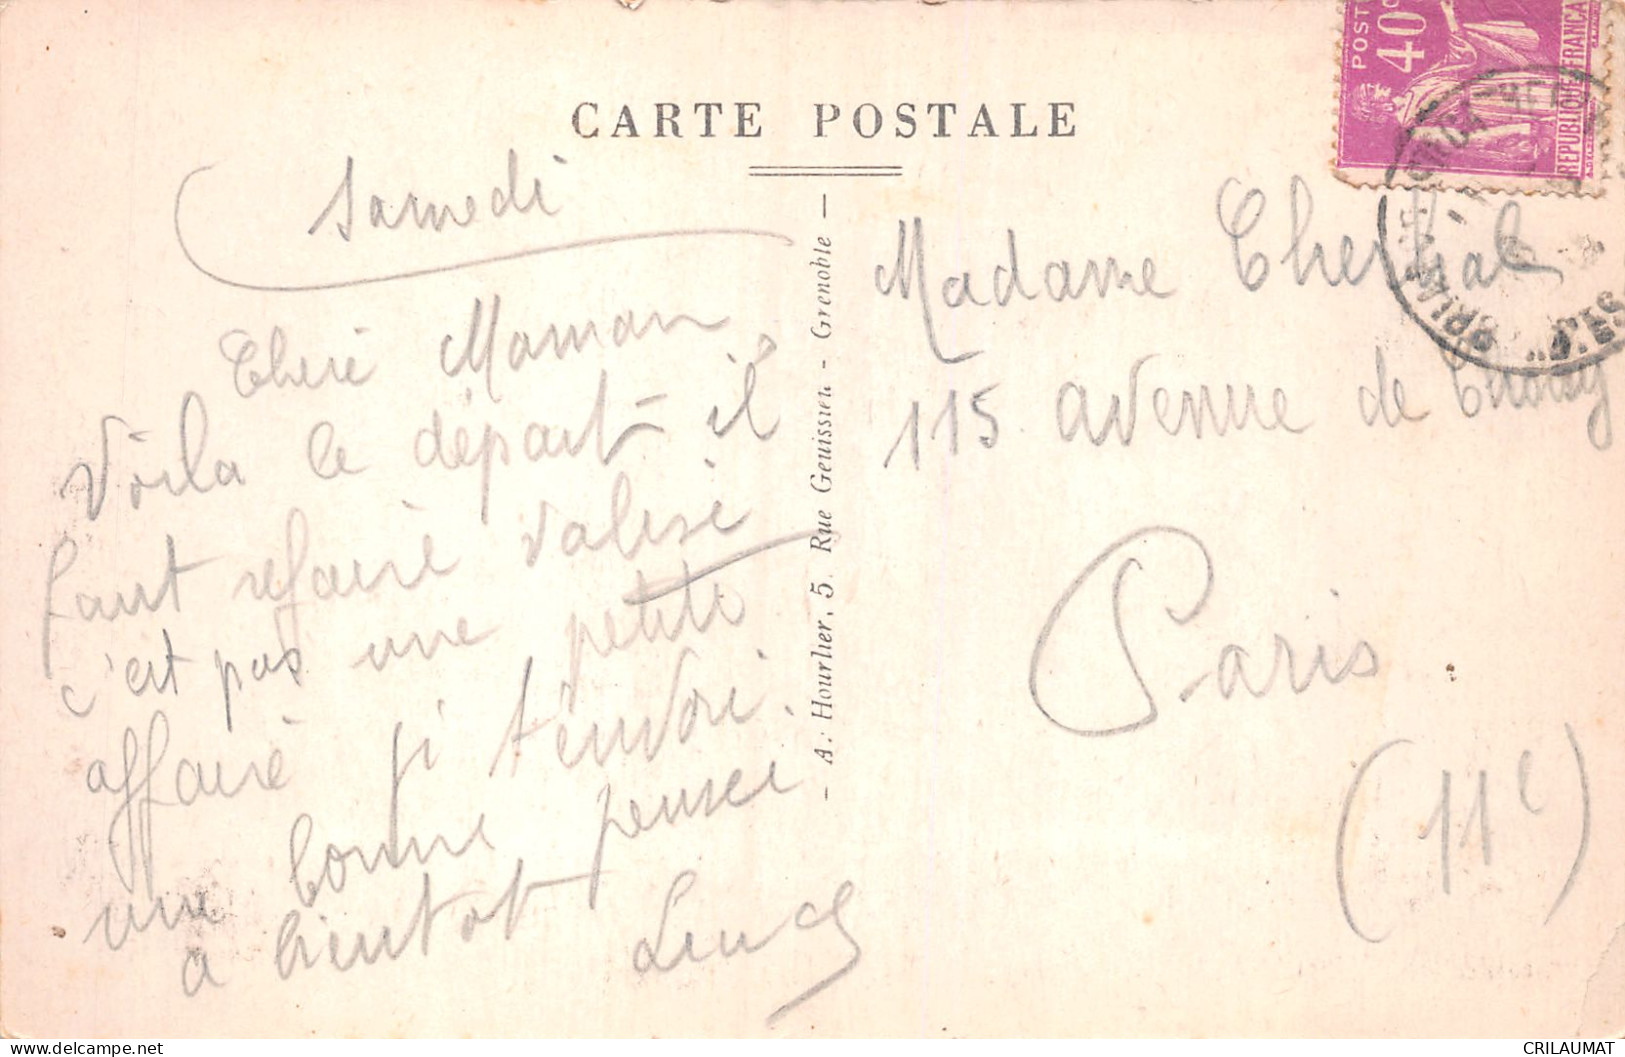 CARTE POSTALE
Samedi
Cheré Maman
Voila le départ il
faut refaire valise
c'est pas une petite
affaire je t'envoie
une bonne pensée
a bientot
A. Hourlier, 5, Rue Geuissien - Grenoble -
POST
40c
REPUBLIQUE FRANCA
Madame
115 avenue de
Paris
(11e)
delcampe.net
CRILAUMAT